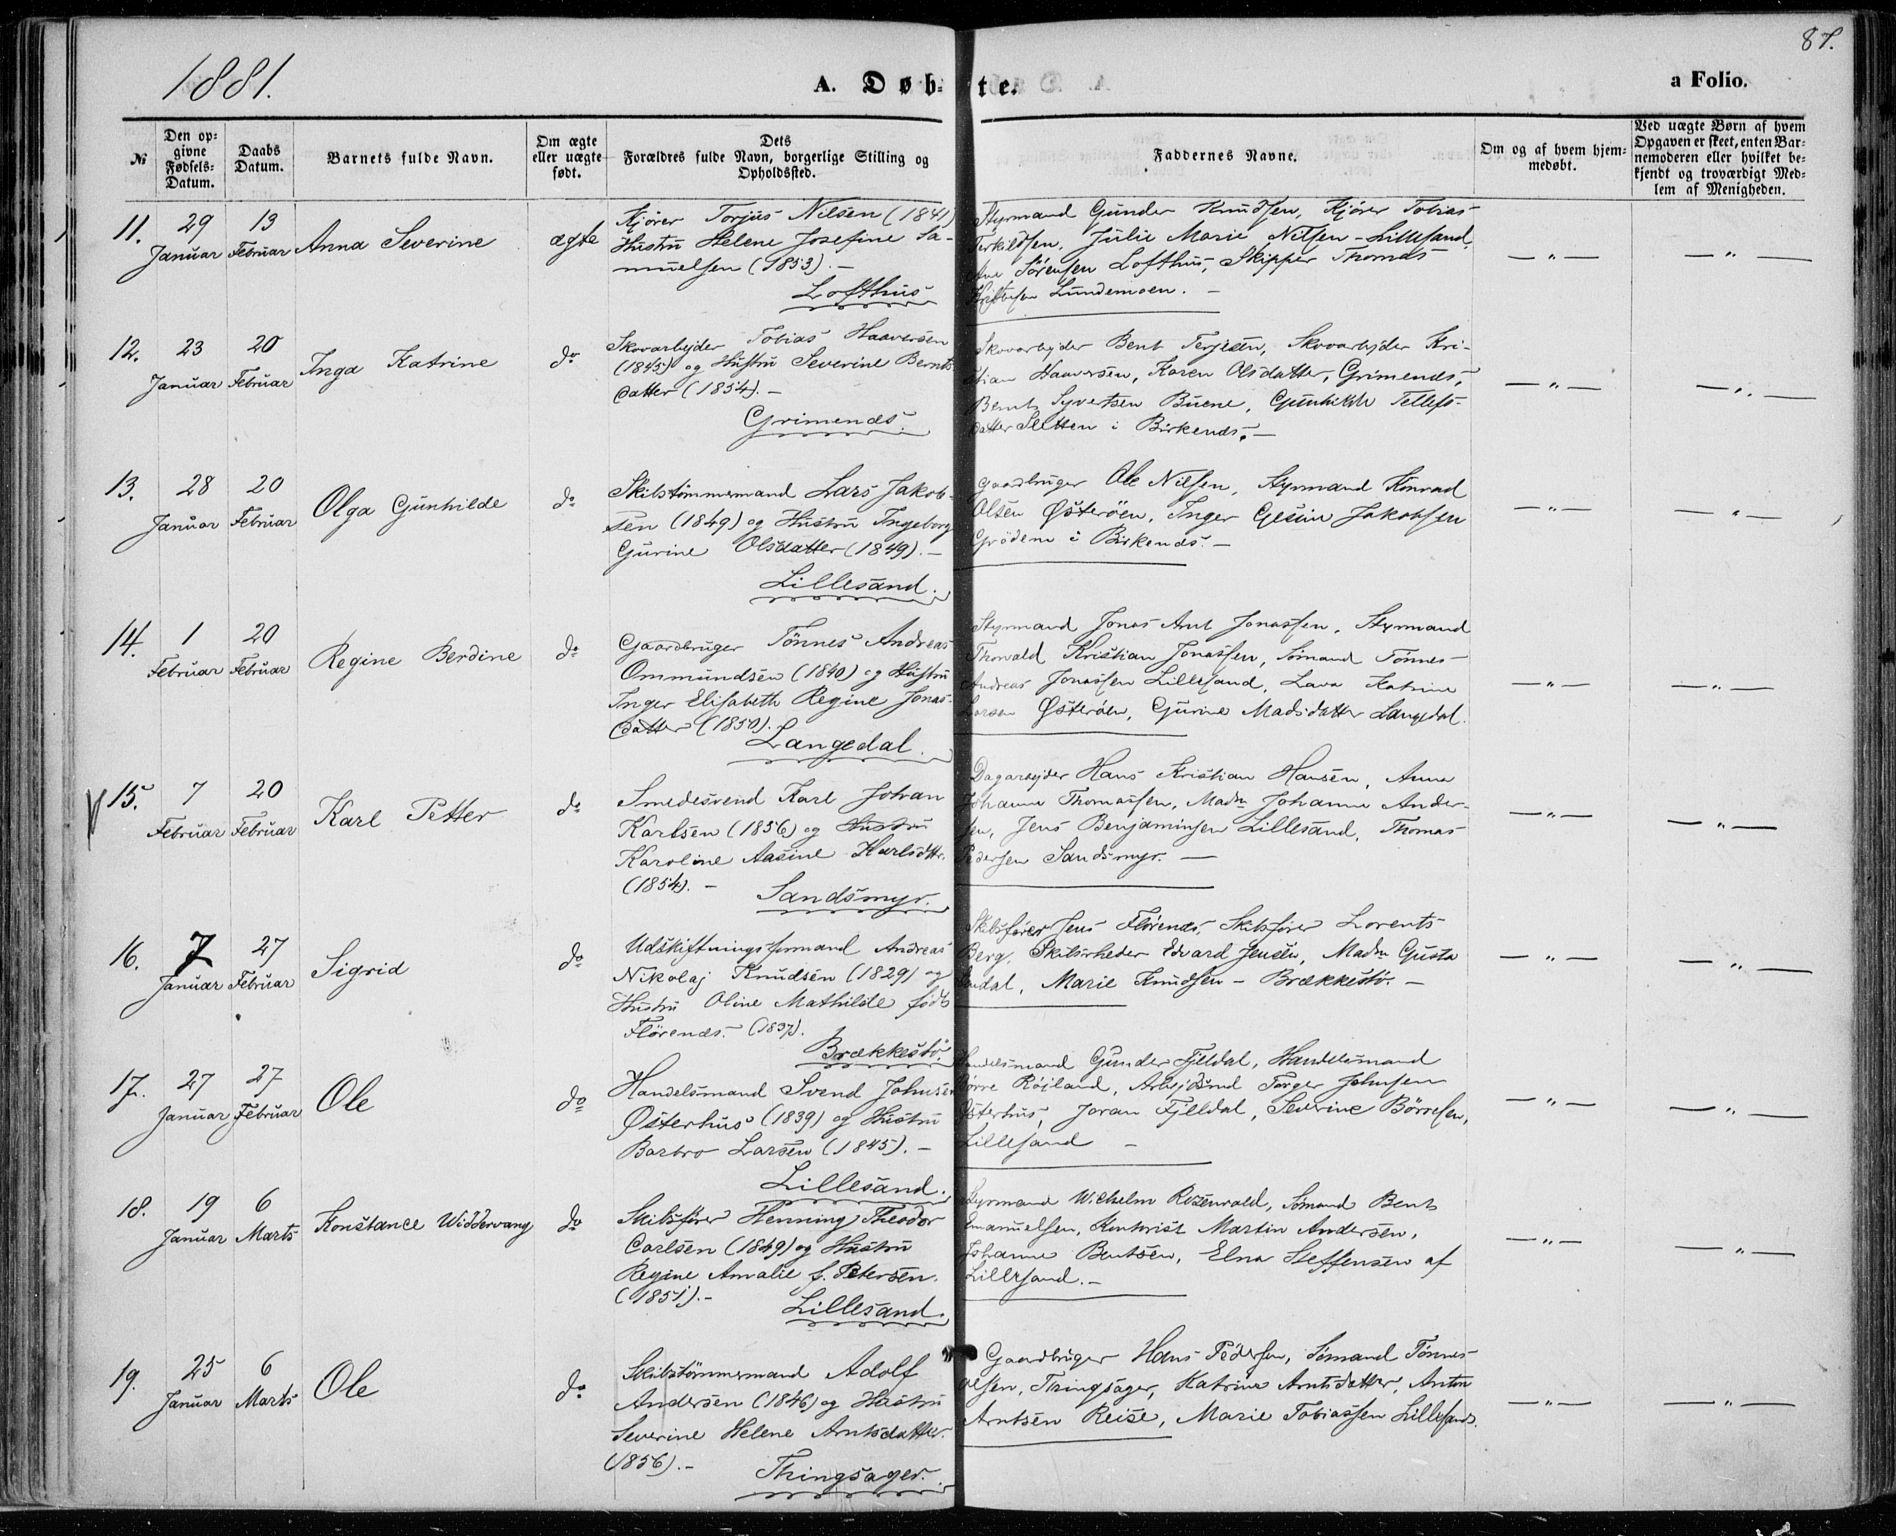 1881.
A. Døbte.
a Folio.
87.
№
Den opgivne Fødsels-Datum.
Daabs Datum.
Barnets fulde Navn.
Om ægte eller uægte født.
Dets Forældres fulde Navn, borgerlige Stilling og Opholdssted.
Faddernes Navne.
Om og af hvem hjemmedøbt.
Ved uægte Børn af hvem Opgaven er skeet, enten Barnemoderen eller hvilket bekjendt og troværdigt Medlem af Menigheden.
11.
29 Januar
13 Februar
Anna Severine
ægte
Kjører Torjus Nilsen (1841)
Hustru Helene Josefine Sa-
muelsen (1853). -
Lofthus
Styrmand Gunder Knudsen, Kjører Tobias
Terkildsen, Julie Marie Nilsen - Lillesand,
Ane Sørensen Lofthus, Skipper Thomas
Lundemoen. -
— " —
— " —
12.
23 Januar
20 Februar
Inga Katrine
do
Skovarbejder Tobias Haaversen
(1845) og Hustru Severine Bernts-
datter (1854). -
Grimenæs.
Skovarbejder Bent Terjesen, Skovarbejder Kri-
stian Haaversen, Karen Olsdatter, Grimenæs,
Bernt Syvertsen Buene, Gunhilde Tellefs-
datter Sletten i Birkenæs. -
— " —
— " —
13.
28 Januar
20 Februar
Olga Gunhilde
do
Skibstømmermand Lars Jakob-
sen (1849) og Hustru Ingeborg
Gurine Olsdatter (1849). -
Lillesand.
Gaardbruger Ole Nilsen, Styrmand Konrad
Olsen Østerøen, Inger Gesine Jakobsen
Grødem i Birkenæs. -
— " —
— " —
14.
1 Februar
20 Februar
Regine Berdine
do
Gaardbruger Tønnes Andreas
Ommundsen (1840) og Hustru
Inger Elisabeth Regine Jonas-
datter (1850).
Langedal.
Styrmand Jonas Arnt Jonassen, Styrmand
Thorvald Kristian Jonassen, Sømand Tønnes
Andreas Jonassen Lillesand, Lava Katrine
Larsen Østerøen, Gurine Madsdatter Langedal.
— " —
— " —
15.
7 Februar
20 Februar
Karl Petter
do
Smedesvend Karl Johan
Karlsen (1856) og Hustru
Karoline Aasine Karlsdtr.
(1854). -
Sandsmyr.
Dagarbejder Hans Kristian Hansen, Anna
Johanne Thomassen, Madm Johanne Ander-
sen, Jens Benjaminsen Lillesand, Thomas
Pedersen Sandsmyr. —
— " —
— " —
16.
7 Januar
27 Februar
Sigrid
do
Udskiftningsformand Andreas
Nikolaj Knudsen (1829) og
Hustru Oline Mathilde født
Flørenæs. (1837).
Brækkestø.
Skibsfører Jens Flørenæs, Skibsfører Lorents
Berg, Skibsrheder Edvard Jensen, Madm Gusta
Marie Knudsen - Brækkestø. -
— " —
— " —
17.
27 Januar
27 Februar
Ole
do
Handelsmand Svend Johnsen
Østerhus (1839) og Hustru
Barbro Larsen (1845). -
Lillesand.
Handelsmand Gunder Fjeldal, Handelsmand
Børre Røiland, Arbejdsmd Torger Johnsen
Østerhus, Joran Fjeldal, Severine Børresen,
Lillesand -
— " —
— " —
18.
19 Januar
6 Marts
Konstance Widdervang
do
Skibsfører Henning Theodor
Carlsen (1849) og Hustru
Regine Amalie f. Petersen.
(1851). -
Lillesand.
Styrmand Wilhelm Rozenvald, Sømand Bent
Emanuelsen, Kontorist Martin Andersen,
Johanne Bentsen, Elna Steffensen af
Lillesand. -
— " —
— " —
19.
25 Januar
6 Marts
Ole
do
Skibstømmermand Adolf
Andersen (1846) og Hustru
Severine Helene Arntsdatter.
(1856). -
Thingsager.
Gaardbruger Hans Pedersen, Sømand Tønnes
Olsen, Thingsager, Katrine Arntsdatter, Anton
Arntsen Reise, Marie Tobiassen Lillesand.
— " —
— " —